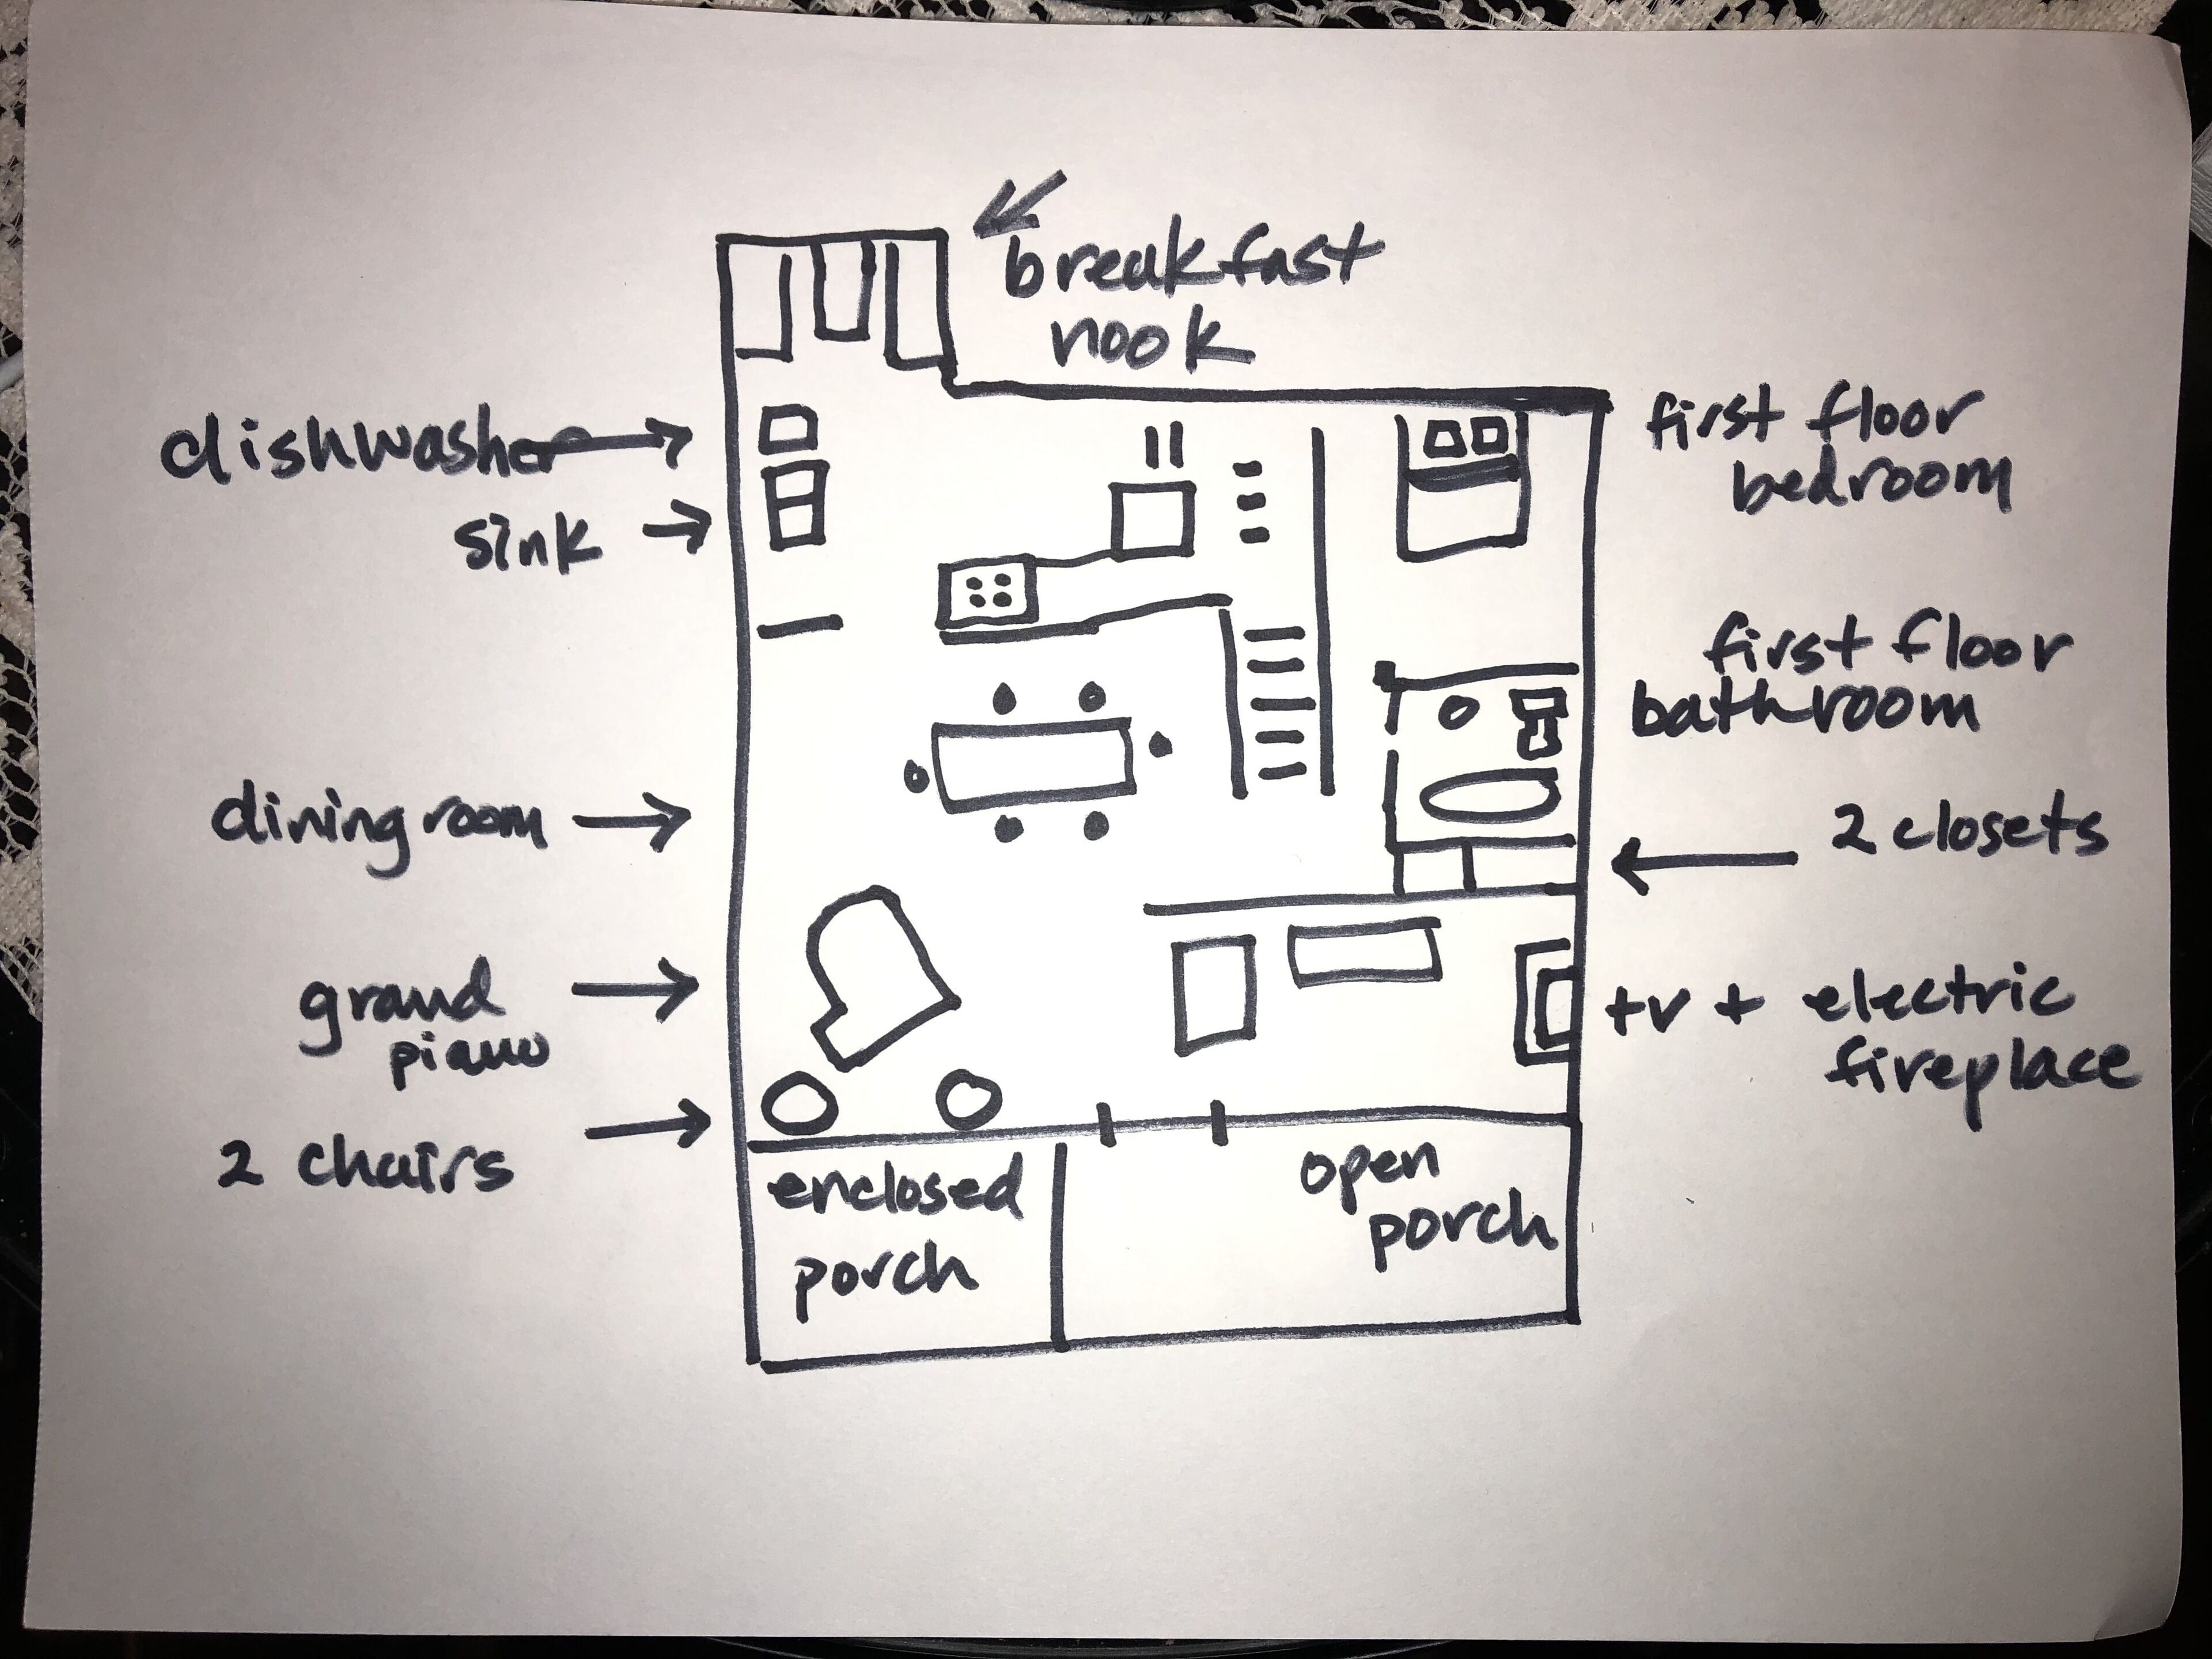 breakfast
nook
dishwasher
sink
first floor
bedroom
first floor
bathroom
dining room
2 closets
grand
piano
tv + electric
fireplace
2 chairs
enclosed
porch
open
porch